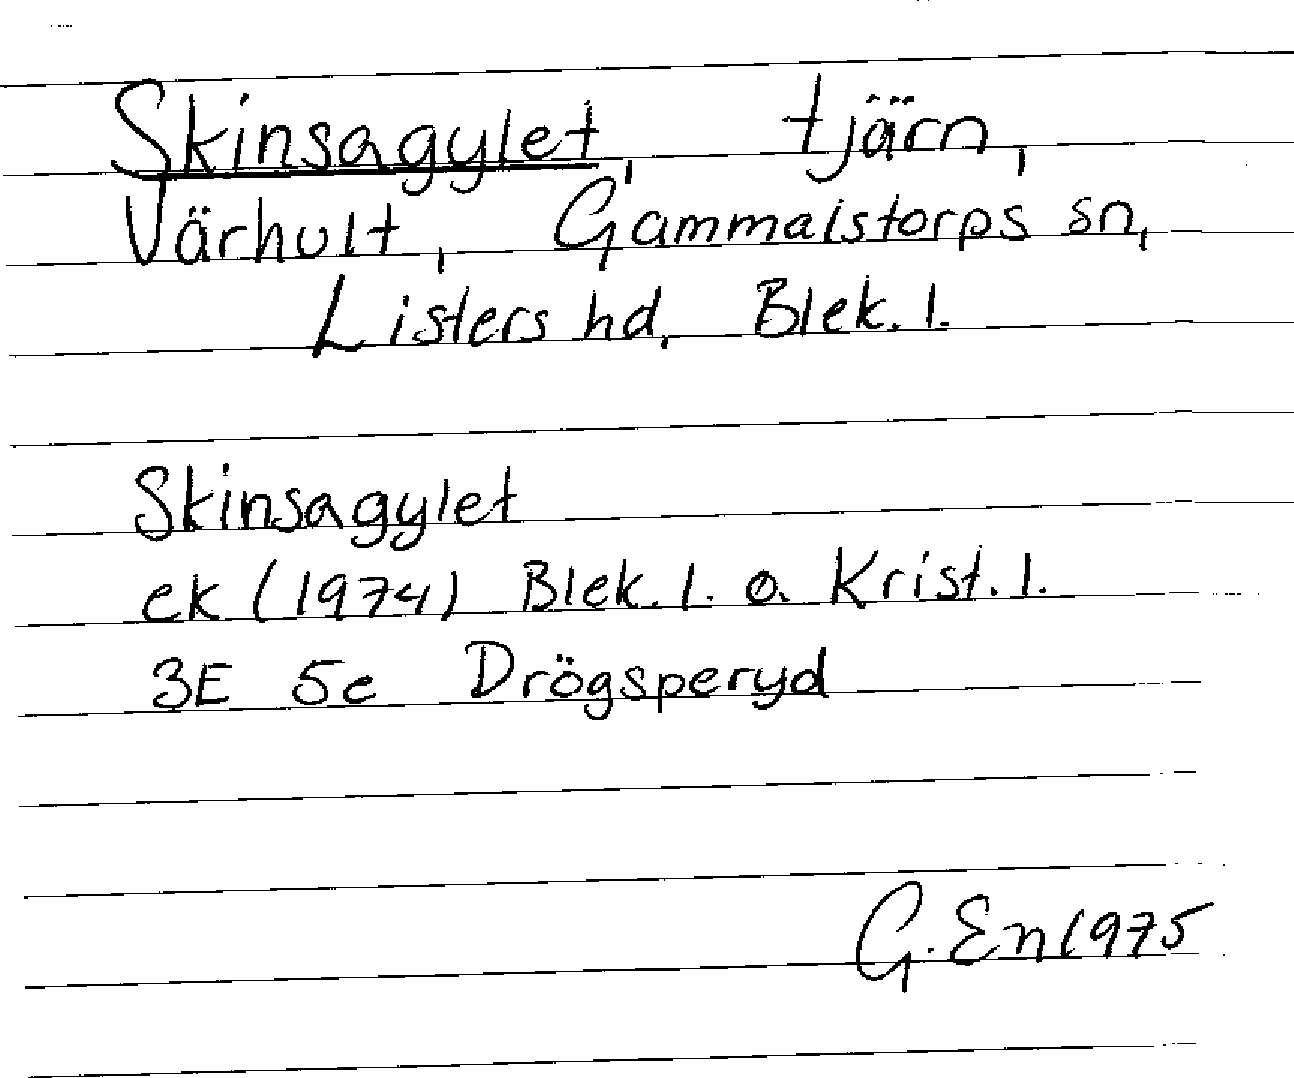 Skinsagylet, tjärn,
Värhult, Gammalstorps sn,
Listers hd, Blek. l.
Skinsagylet
ek (1974) Blek. l. o. Krist. l.
3E 5e Drögsperyd
G. En 1975